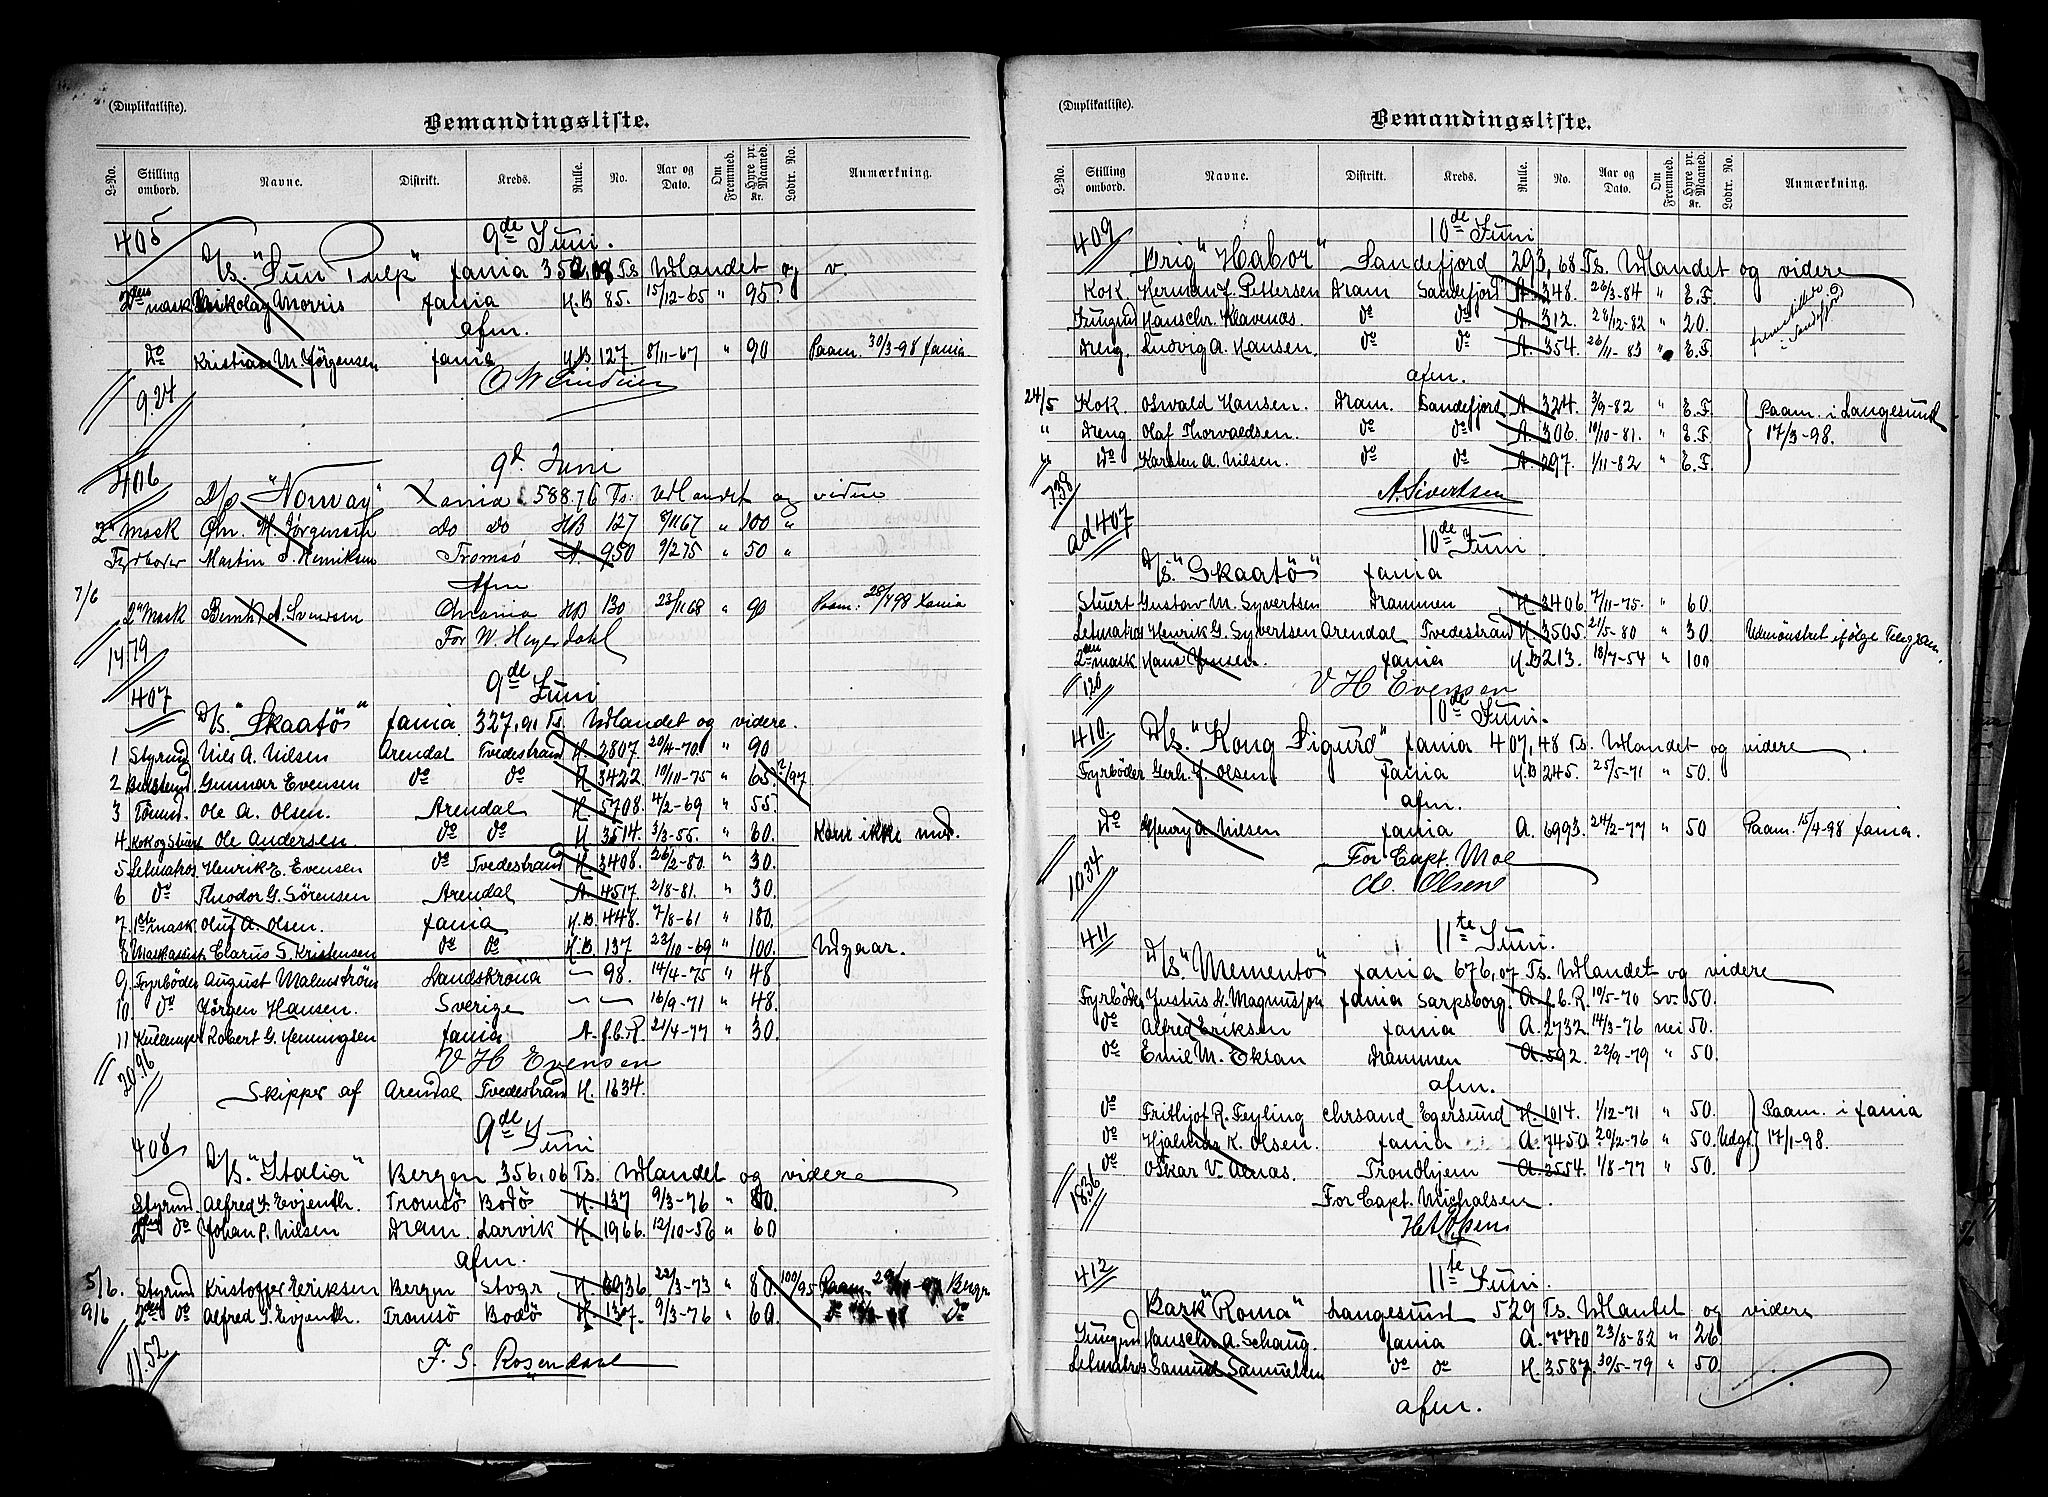 (Duplikatliste).
Bemandingsliste.
L-No. Stilling ombord. Navne. Distrikt. Kreds. Rulle. No. Aar og Dato. Om Fremmed. Hyre pr. Maaned. Kr. Lodtr. No. Anmærkning.
405 9de Juni.
D/S. "Sun Pulp" Xania 352,08 Ts Udlandet og v.
2den mask Nikolay Morris Xania H.B 85. 15/12-65 " 95.
afm.
Do Kristian M. Jørgensen Xania H.B 127. 8/11-67 " 90 Paam. 30/3-98 Xania
9.24
406 9d. Juni
D/S "Norway" Xania 588.76 Ts: Udlandet og videre
2n Mask Chr. M. Jørgensen Do Do HB 127 8/11 67 " 100 "
Fyrbøder Martin J. Henriksen Tromsö A. 950 9/2 75 " 50 "
Afm
7/6 2n Mask Bernh. A. Svensen Chrania HB 130 23/11 68 " 90 Paam. 28/4 98 Xania
For W. Heyerdahl
14.79
407 9de Juni
D/S. "Skaatös" Xania 327,91 Ts. Udlandet og videre.
1 Styrmd Nils A. Nilsen Arendal Tvedestrand H. 2807. 20/4-70. " 90
2 Bedstmd. Gunnar Evensen do do H 3422 19/10-75 " 65. 2/97
3 Tömmd. Ole A. Olsen. Arendal H. 5708. 4/2-69 " 55.
4 Kok og Stuert Ole Andersen do do H 3514. 3/3-55. " 60. Kom ikke med.
5 Letmatros Henrik E. Evensen do Tvedestrand H. 3408. 26/2-80. " 30.
6 do Theodor G. Sörensen Arendal A. 4517 2/8-81. " 30.
7. 1ste mask Oluf A. Olsen. Xania H.B. 448. 7/8-61 " 180.
8 Maskassist Clarus S. Kristensen do do H.B. 137 23/10-69 " 100. Udgaar.
9. Fyrböder August Malmström Landskrona — 98. 14/4-75 " 48
10. do Jörgen Hansen. Sverige — — 16/9-71 " 48.
11 Kullemper Robert G. Henningsen Xania A. f.C.R. 21/4-77 " 30.
V H Evensen
20.96
Skipper af Arendal Tvedestrand H. 1634.
408 9de Juni
D/S. "Italia" Bergen 356,06 Ts. Udlandet og videre
Styrmd Alfred J. Evjenth. Tromsö Bodö H. 137 9/3-76 " 80.
2den do Johan P. Nilsen Dram. Larvik H. 1966. 12/10-56 " 60
afm.
5/6. Styrmd Kristoffer Eriksen Bergen Stvgr H. 6936 22/3-73 " 80 100/95 Paam. Bergn
9/6 2den do Alfred J. Evjenth. Tromsö Bodö H. 137. 9/3-76 " 60 do
F. S. Rosendahl
11.52
(Duplikatliste).
Bemandingsliste.
L-No. Stilling ombord. Navne. Distrikt. Kreds. Rulle. No. Aar og Dato. Om Fremmed. Hyre pr. Maaned. Kr. Lodtr. No. Anmærkning.
409 10de Juni
Brig "Habor" Sandefjord 293,68 Ts. Udlandet og videre
Kok Herman L. Pettersen Dram Sandefjord A. 348. 26/3-84 " E.F.
Jungmd Hans Chr. Klavenæs. do do A. 312. 28/12-82 " 20. fremstilles i Sandefjord
Dreng. Ludvig A. Hansen. do do A. 354. 26/11-83 " E.F
afm.
24/5 Kok. Oswald Hansen. Dram. Sandefjord A. 324. 3/9-82 " E.F. Paam. i Langesund
" Dreng. Olaf Thorvaldsen. do do A. 306. 19/10-81. " E.F 17/3-98.
" Do Karsten A. Nilsen. do do A. 297. 1/11-82 " E.F
A. Sivertsen
7.38
ad 407 10de Juni
D/S. "Skaatö" Xania
Stuert Gustav M. Syvertsen Drammen H. 3406. 7/11-75. " 60.
Letmatros Henrik G. Syvertsen Arendal Tvedestrand H. 3505. 21/5-80 " 30. Udmönstret ifölge Telegram.
2den mask Hans Jensen. Xania H.B 213. 18/7-54 " 100
1.20
V H Evensen
410 10de Juni.
D/S. "Kong Sigurd" Xania 407,48 Ts. Udlandet og videre.
Fyrböder Gerh. J. Olsen Xania H.B 245. 25/5-71 " 50.
afm.
Do Henry A. Nilsen Xania A. 6993. 24/2-77 " 50 Paam. 15/4-98 Xania.
For Capt. Moe
Olsen
10.34
411 11te Juni.
D/S. "Memento" Xania 676,07 Ts. Udlandet og videre
Fyrböder Justus A. Magnusson Xania Sarpsborg. A. f.C.R. 10/5-70 Sv. 50.
do Alfred Eriksen Xania A. 2732. 14/3-76 nei 50.
do Emil M. Eklan Drammen A. 592. 22/9-79 " 50.
afm.
do Frithjof R. Feyling Chrsand Egersund H. 1014. 1/12-71 " 50. Paam. i Xania
do Hjalmar K. Olsen. Xania A. 7450. 29/2-76 " 50. Udgr 17/1-98.
do Oskar V. Aenas. Trondhjem A. 2554. 1/8-77 " 50.
For Capt. Michalsen.
18.36
412 11te Juni.
Bark "Roma" Langesund 529 Ts. Udlandet og videre
Jungmd Hans Chr. A. Schaug. Xania A. 7770 23/8-82 " 26
Letmatros Samuel Samuelsen do do H. 3587. 30/5-79 " 50.
afm.